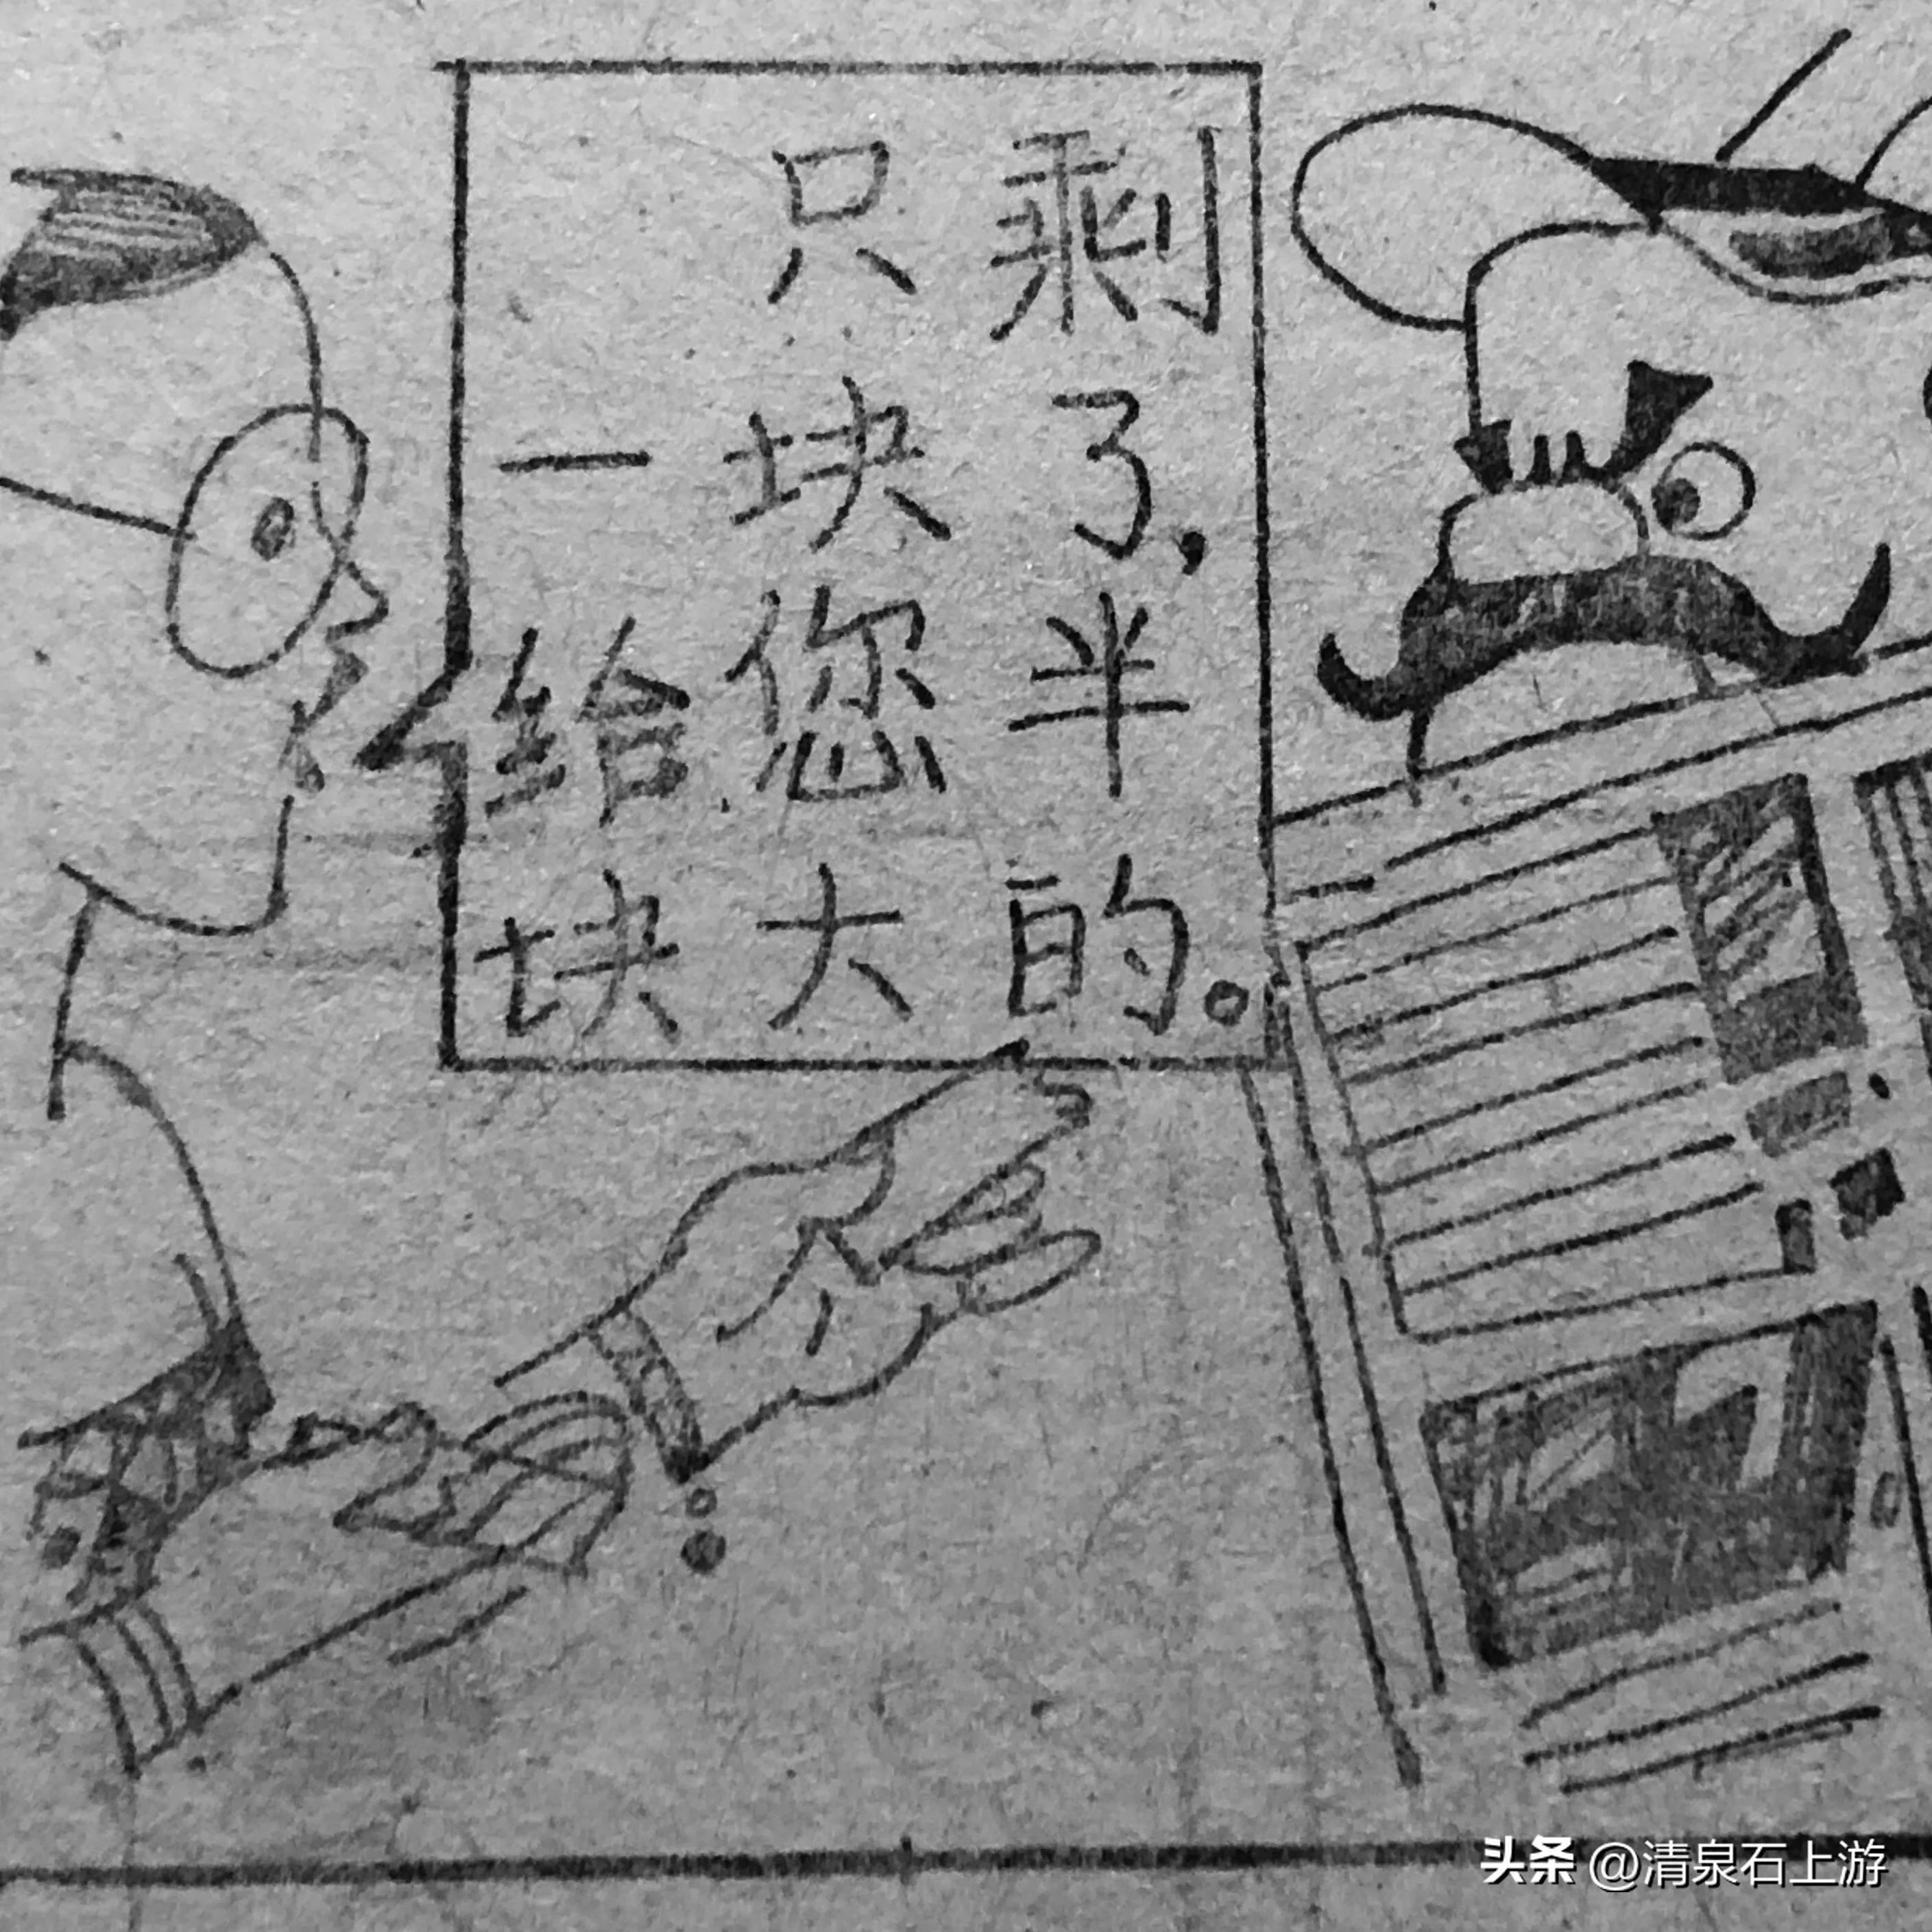 只剩
一块了,
给您半
块大的。
头条 @清泉石上游